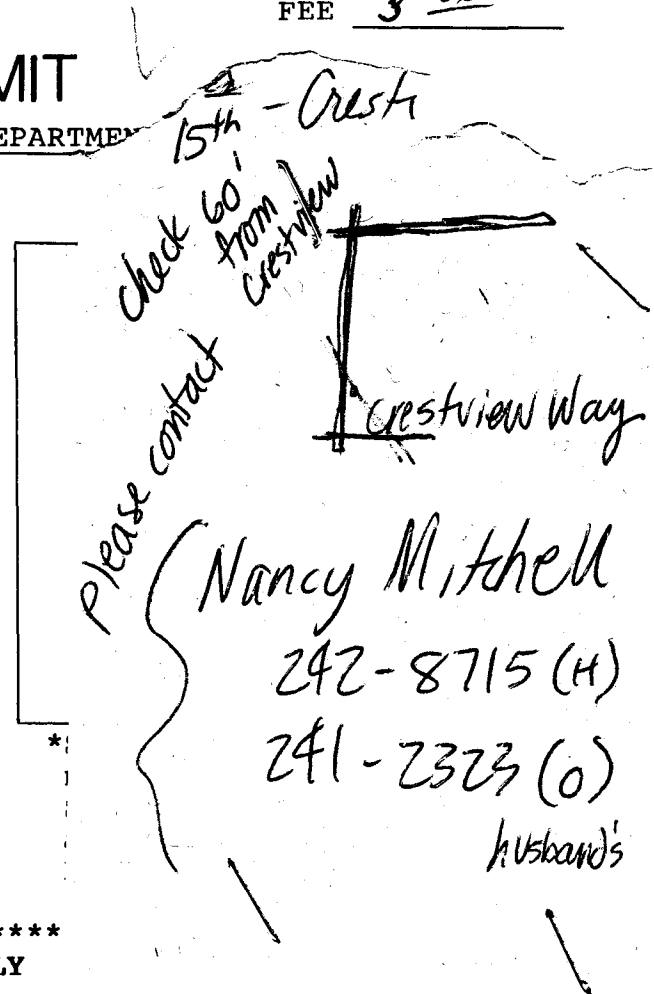 FEE 3
MIT
EPARTMEN
15th - Crest
check 60'
from
crestview
Crestview Way
Please contact
Nancy Mitchell
242-8715 (H)
241-2323 (O)
husband's
*
****
LY